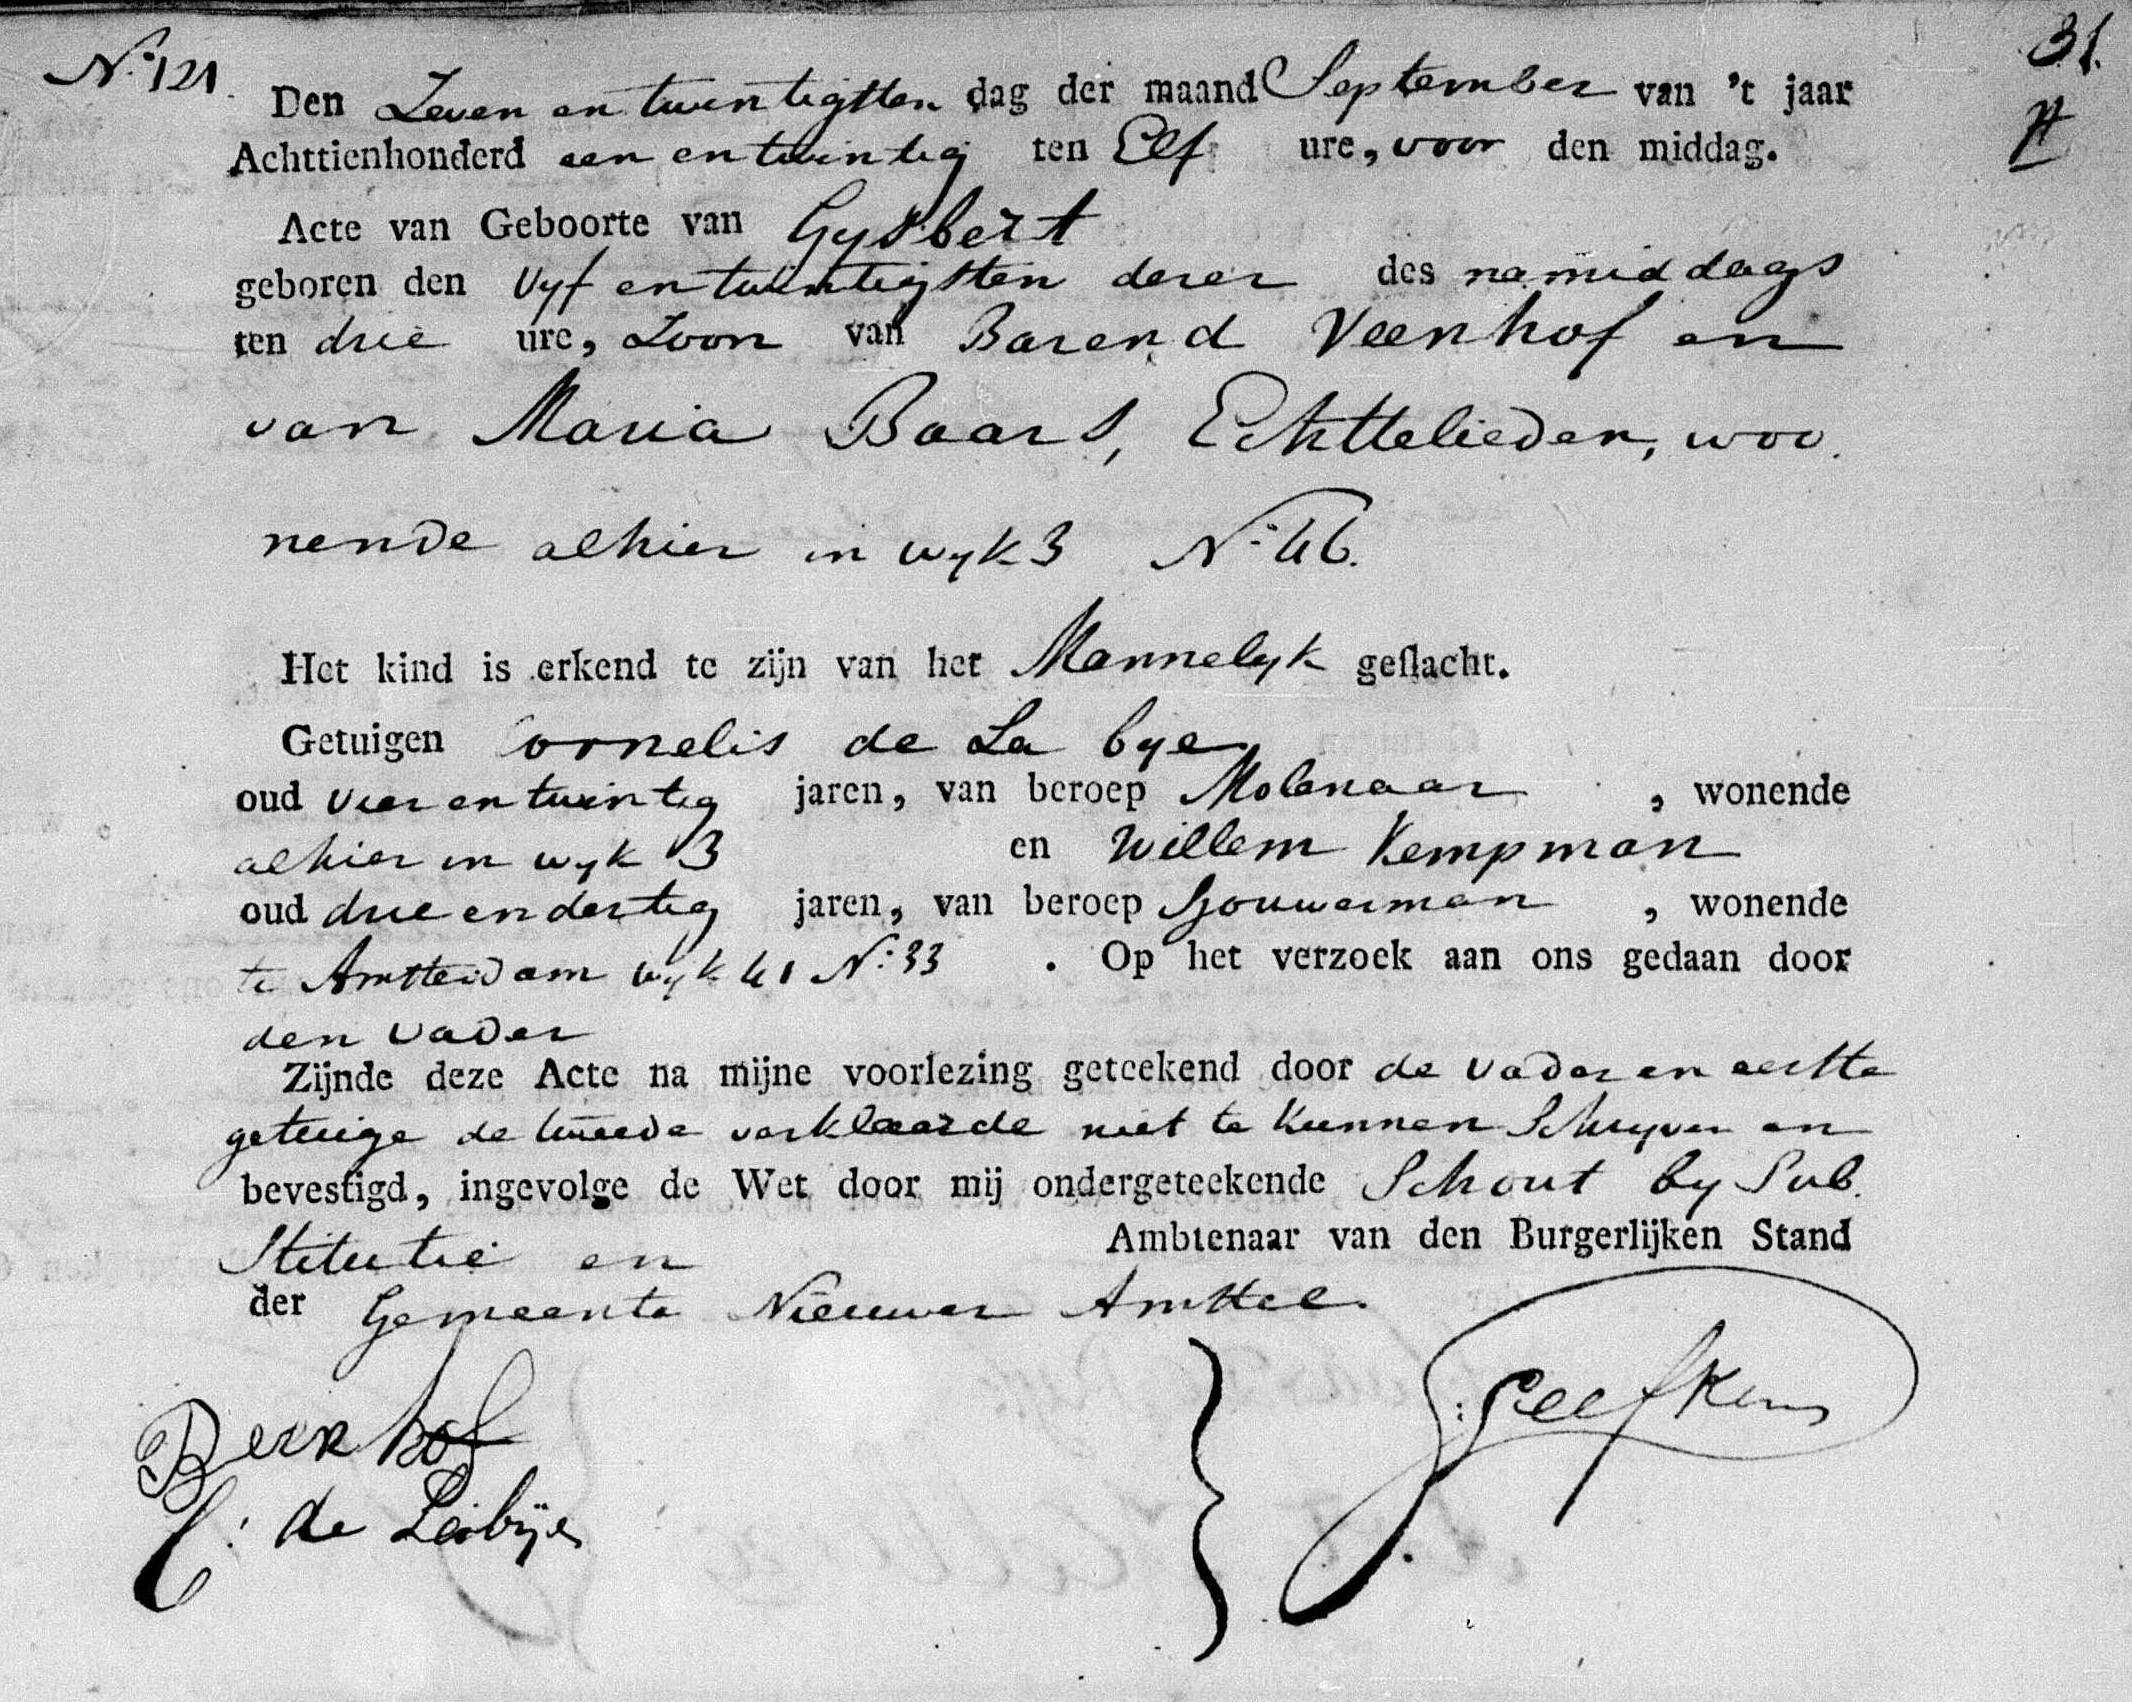 N:o 121.
31.
Den Zeven en twintigsten dag der maand September van 't jaar
Achttienhonderd een en twintig ten Elf ure, voor den middag.
Acte van Geboorte van Gysbert
geboren den Vyf en twintigsten dezer des namiddags
ten drie ure, Zoon van Barend Veenhof en
van Maria Baars, Echttelieden, woo
nende alhier in wyk 3 N:o 46.
Het kind is erkend te zijn van het Mannelyk geslacht.
Getuigen Cornelis de La bye
oud vier en twintig jaren, van beroep Molenaar, wonende
alhier in wyk 3 en Willem Kempman
oud drie en dertig jaren, van beroep Sjouwerman, wonende
te Amsterdam wyk 41 N:o 33. Op het verzoek aan ons gedaan door
den Vader
Zijnde deze Acte na mijne voorlezing geteekend door de Vader en eerste
getuige de tweede verklaarde niet te kunnen Schryven en
bevestigd, ingevolge de Wet door mij ondergeteekende Schout by Sub
Stitutie en Ambtenaar van den Burgerlijken Stand
der Gemeente Nieuwer Amstel.
B Veenhof
C: de Labije